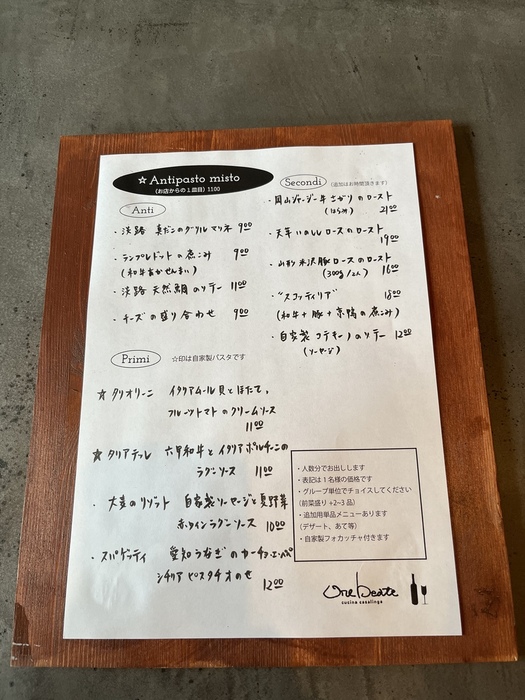 ☆Antipasto misto
(お店からの1皿目) 1100
Anti
・淡路 真だこのグリルマリネ 900
・ランプレドットの煮こみ 900
(和牛あかせんまい)
・淡路 天然鯛のソテー 1100
・チーズの盛り合わせ 900
Primi ☆印は自家製パスタです
☆タリオリーニ イタリアムール貝とほたて、
フルーツトマトのクリームソース
1100
☆タリアテッレ 六甲和牛とイタリアポルチーニの
ラグーソース 1100
・大麦のリゾット 自家製ソーセージと夏野菜
赤ワインラグーソース 1000
・スパゲッティ 愛知うなぎのカーチョ・エ・ペペ
シチリアピスタチオのせ
1200
Secondi (追加はお時間頂きます)
・岡山ジャージー牛さがりのロースト
(はらみ) 2100
・天草いのししロースのロースト
1900
・山形米沢豚ロースのロースト
(300g/2人) 1600
・"スコッティリア" 1800
(和牛+豚+京鴨の煮こみ)
・自家製コテキーノのソテー 1200
(ソーセージ)
・人数分でお出しします
・表記は1名様の価格です
・グループ単位でチョイスしてください
(前菜盛り+2~3品)
・追加用単品メニューあります
(デザート、あて等)
・自家製フォカッチャ付きます
One beate
cucina casalinga